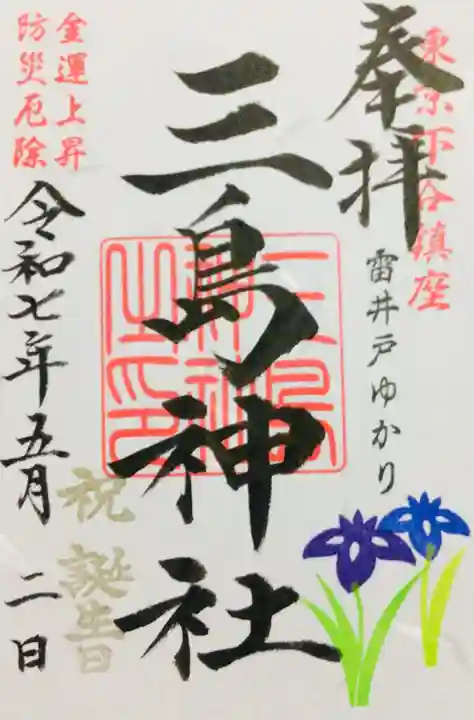 東京下谷鎮座
奉拝
雷井戸ゆかり
三島神社
三島神社之印
金運上昇
防災厄除
祝誕生日
令和七年五月二日